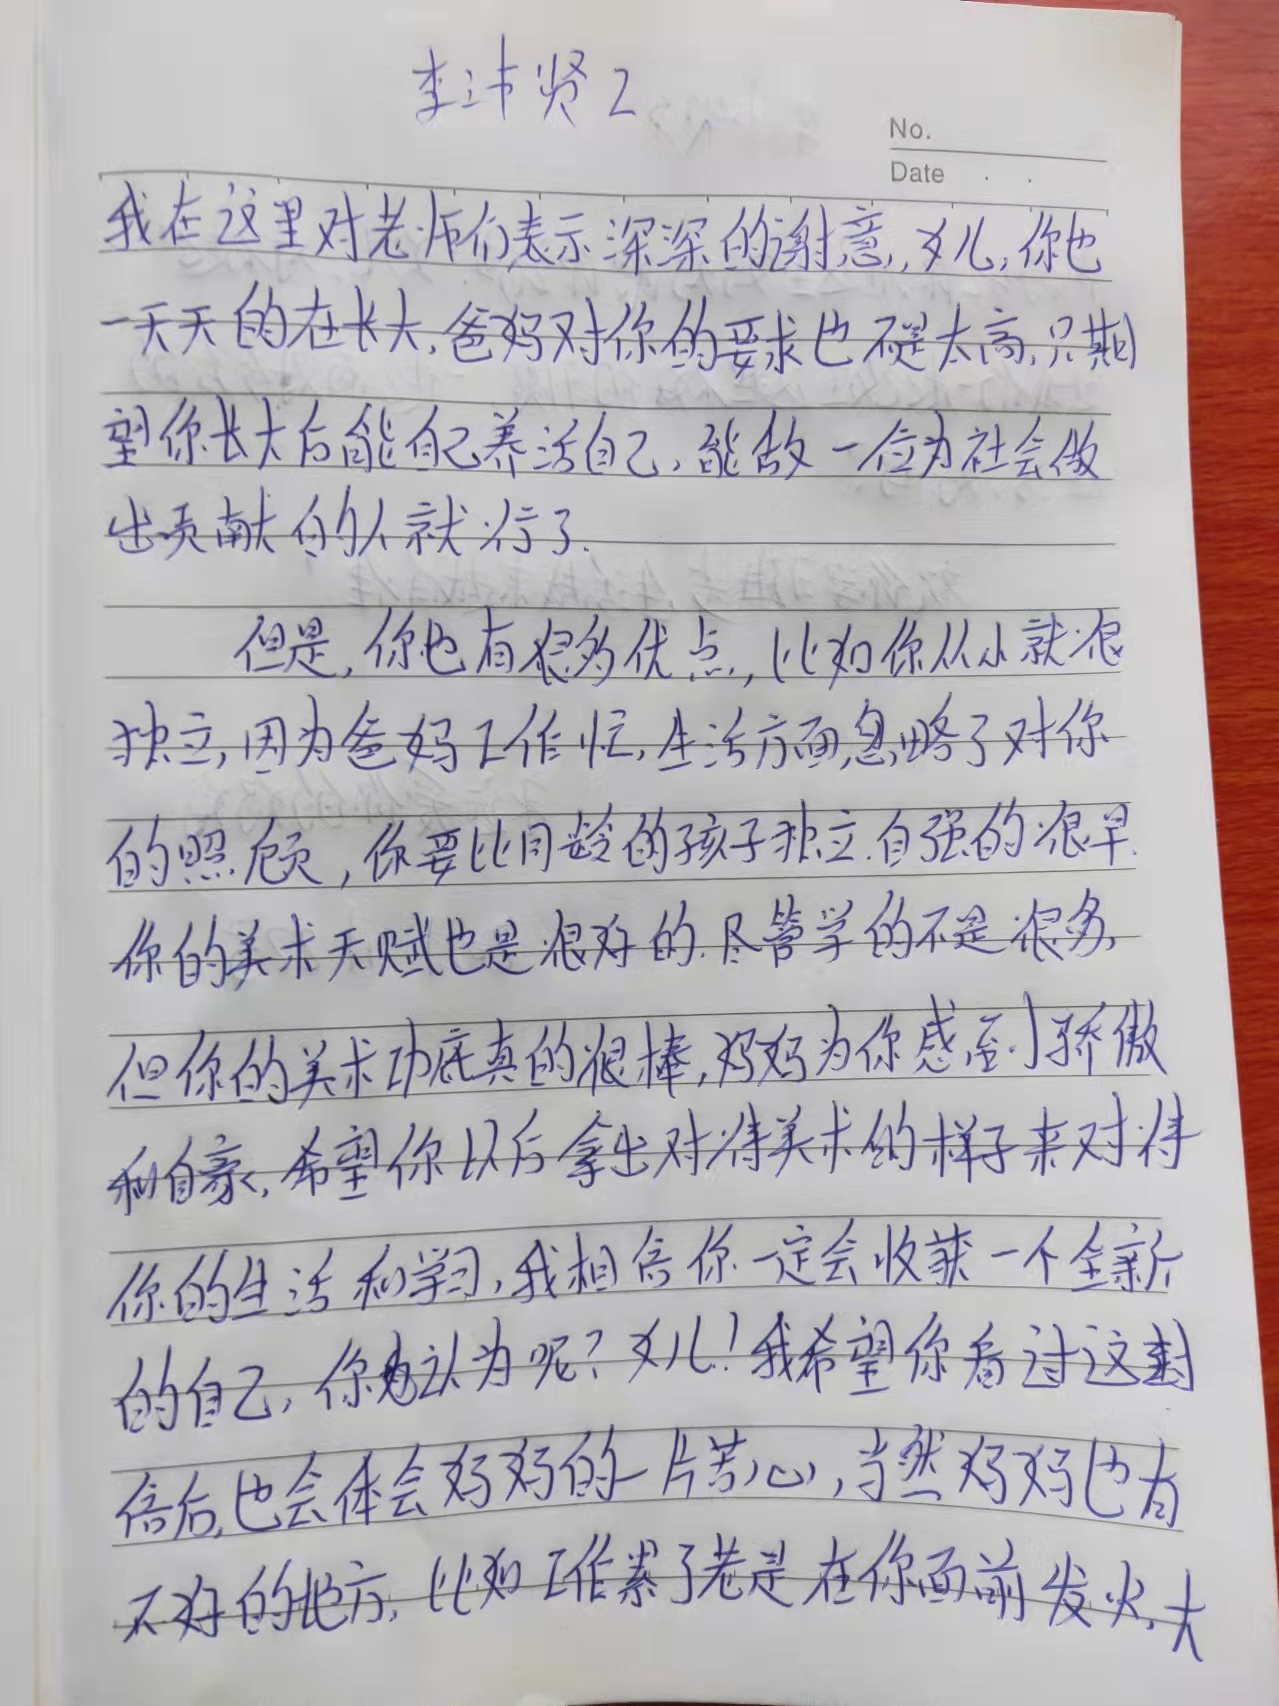 李沛贤2
No.
Date
我在这里对老师们表示深深的谢意,女儿,你也
一天天的在长大,爸妈对你的要求也不是太高,只期
望你长大后能自己养活自己,能做一位为社会做
出贡献的人就行了.
但是,你也有很多优点,比如你从小就很
独立,因为爸妈工作忙,生活方面忽略了对你
的照顾,你要比同龄的孩子独立.自强的很早.
你的美术天赋也是很好的.尽管学的不是很多,
但你的美术功底真的很棒,妈妈为你感到骄傲
和自豪,希望你以后拿出对待美术的样子来对待
你的生活和学习,我相信你一定会收获一个全新
的自己,你认为呢?女儿!我希望你看过这封
信后,也会体会妈妈的一片苦心,当然妈妈也有
不好的地方,比如工作累了老是在你面前发火,大